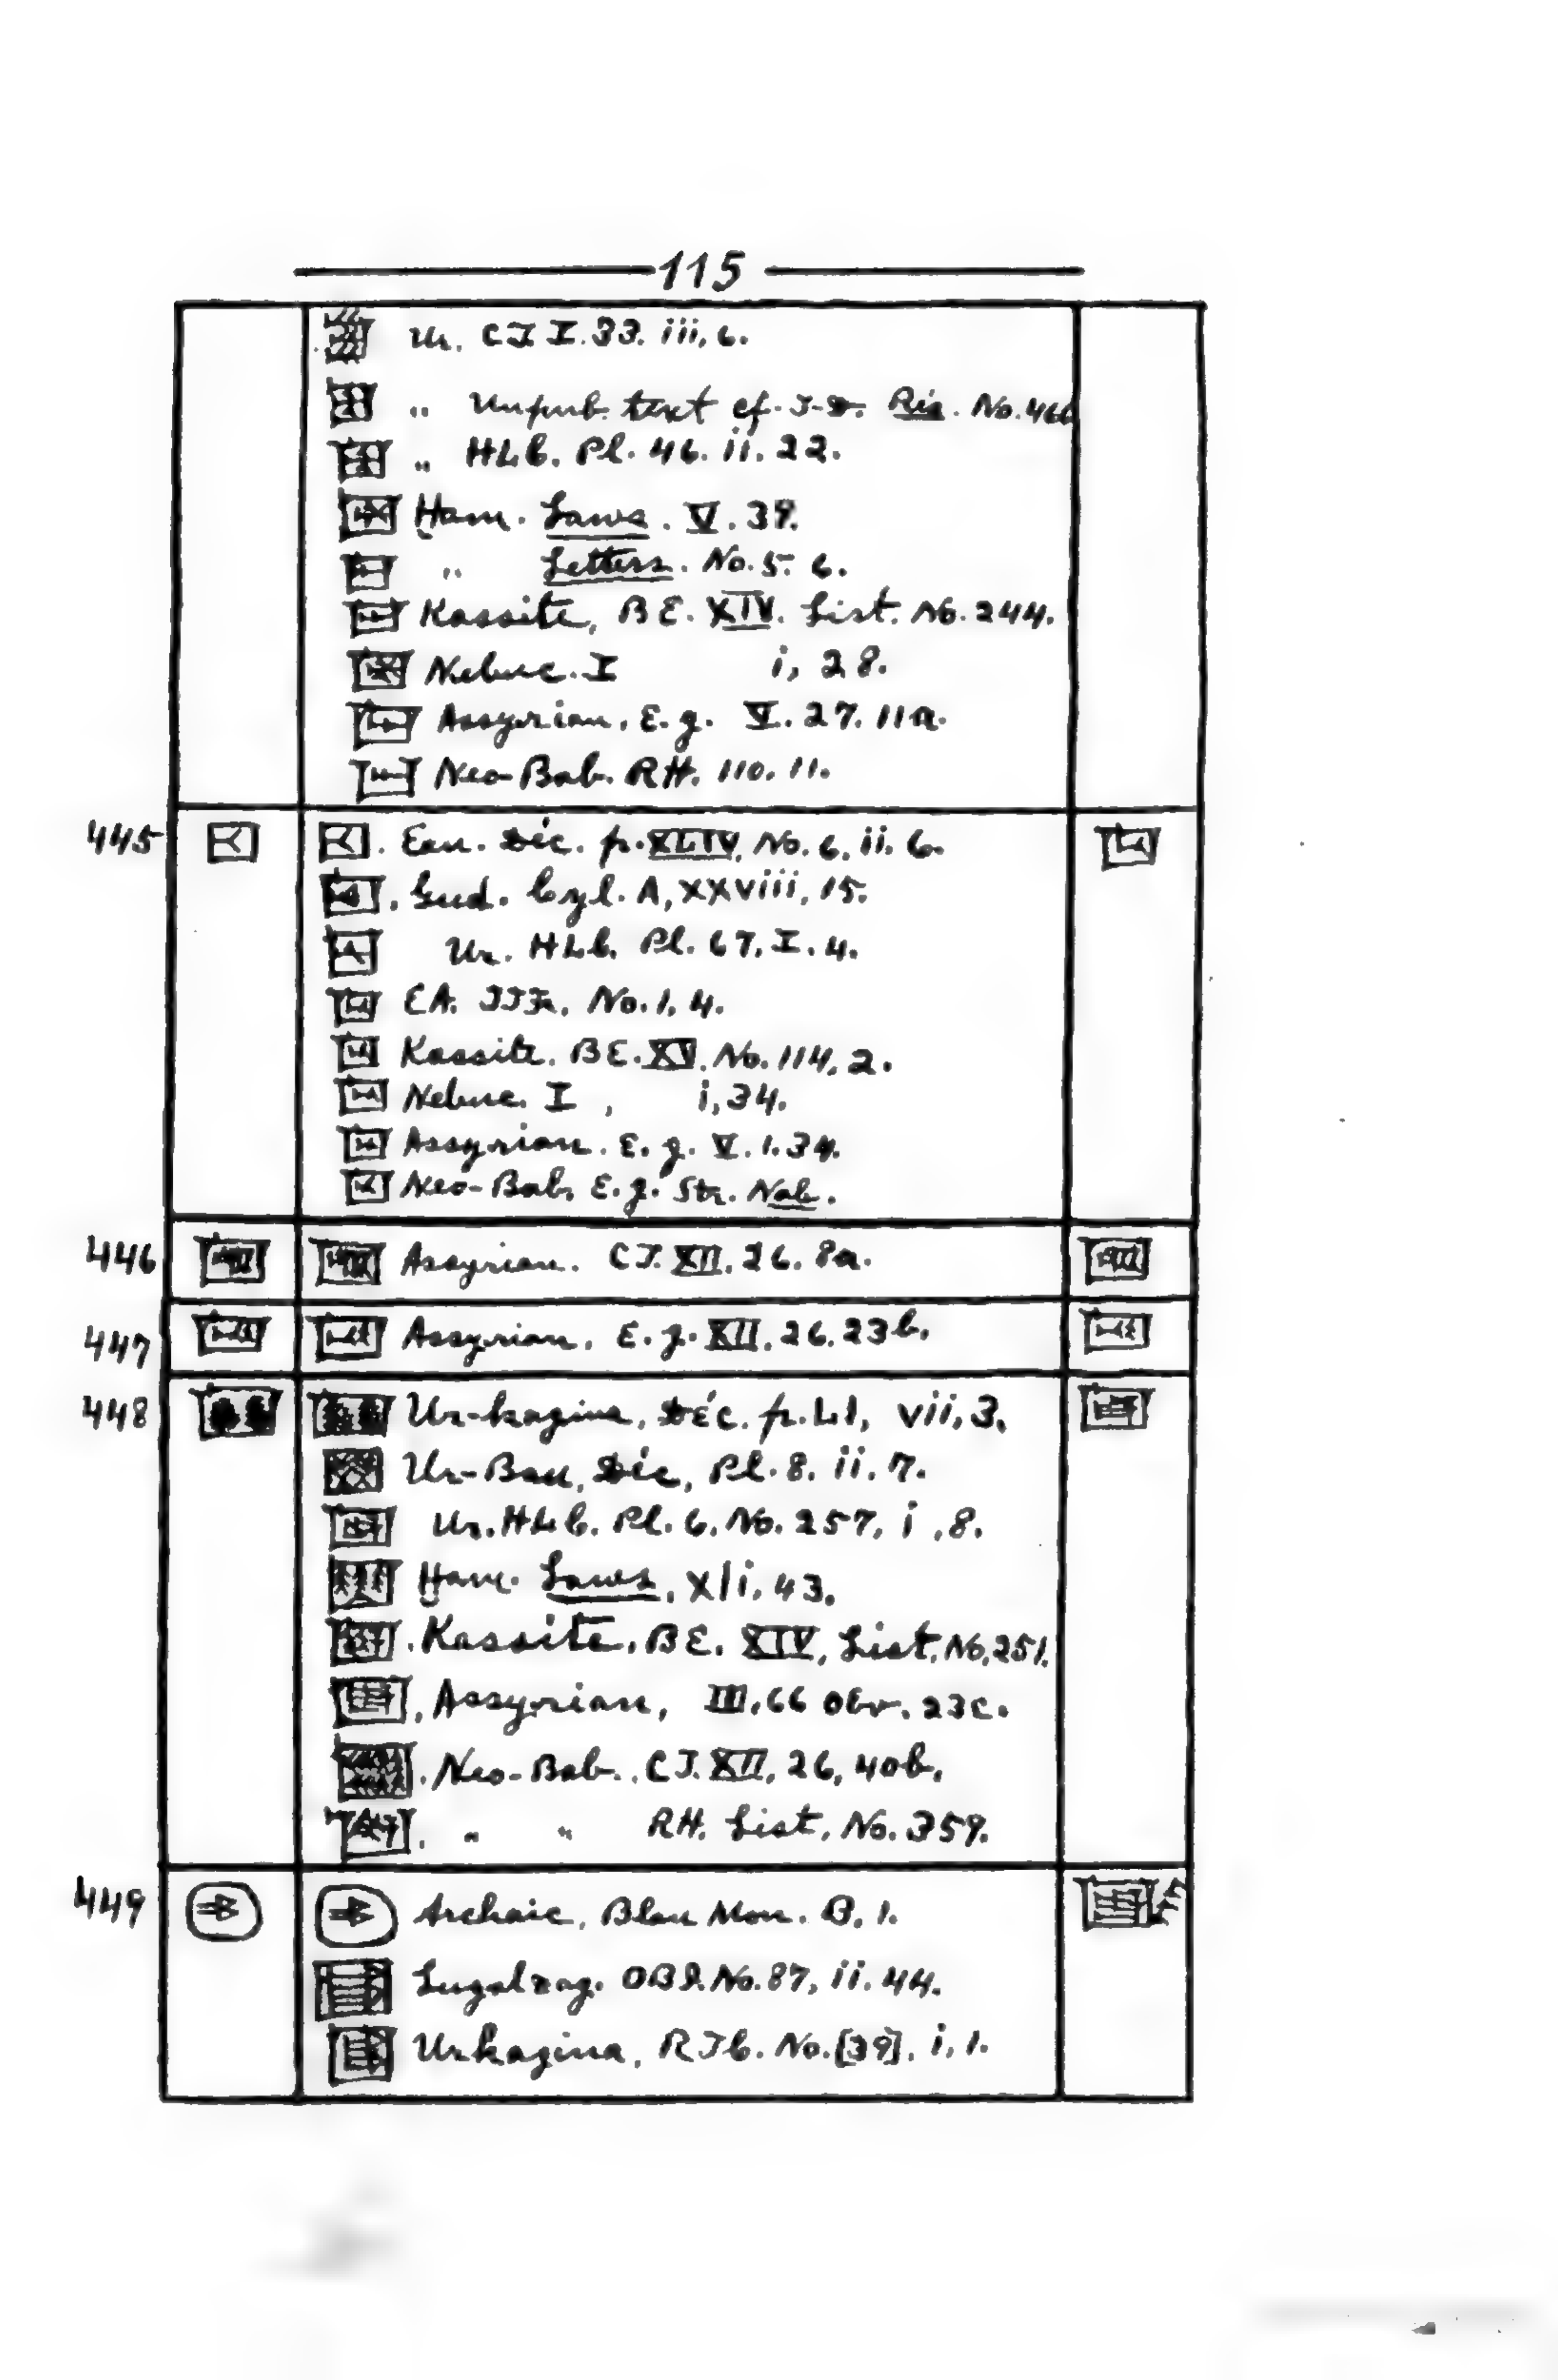 115
Ur. CT I. 33. iii, 6.
„ Unpub. text cf. T-D. Réc. No. 466
„ HLC. Pl. 46. ii. 22.
Ḫam. Laws. V. 39.
„ Letters. No. 5. 6.
Kassite, BE. XIV. List. No. 244.
Nebuc. I i, 28.
Assyrian. E.g. V. 27. 11a.
Neo-Bab. RH. 110. 11.
445 Ean. Déc. p. XLIV, No. 6, ii. 6.
Gud. Cyl. A, XXviii, 15.
Ur. HLC. Pl. 67. I. 4.
EA. No. 1, 4.
Kassite. BE. XV. No. 114, 2.
Nebuc. I , i, 34.
Assyrian. E.g. V. 1. 34.
Neo-Bab. E.g. Str. Nab.
446 Assyrian. CT. XII. 26. 8a.
447 Assyrian. E.g. XII. 26. 23b.
448 Ur-kagina, Déc. p. LI, vii, 3.
Ur-Bau, Déc, Pl. 8. ii. 7.
Ur. HLC. Pl. 6. No. 257, i, 8.
Ḫam. Laws, xli, 43.
Kassite, BE. XIV, List, No, 251.
Assyrian, III. 66 obv. 23c.
Neo-Bab. CT. XII, 26, 40b,
„ „ RH. List, No. 359.
449 Archaic, Blau Mon. B. 1.
Lugalzag. OBI. No. 87, ii. 44.
Urkagina, RTC. No. [39], i, 1.